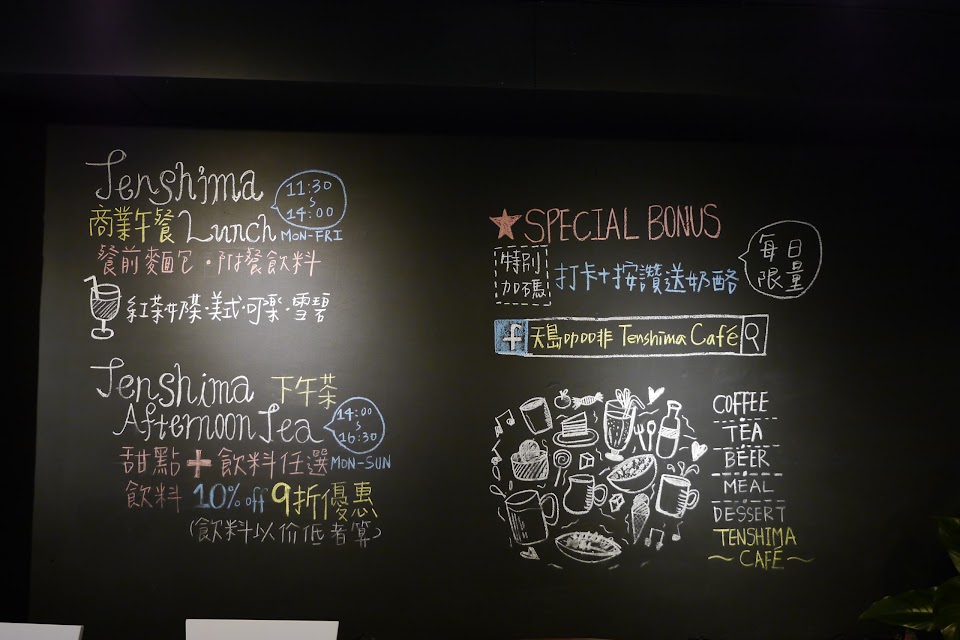 Tenshima
11:30
~
14:00
商業午餐 Lunch MON-FRI
餐前麵包·附餐飲料
紅茶·奶茶·美式·可樂·雪碧
Tenshima 下午茶
Afternoon Tea
14:00
~
16:30
甜點+飲料任選 MON-SUN
飲料 10% off 9折優惠
(飲料以价低者算)
★SPECIAL BONUS
特別
加碼
打卡+按讚送奶酪
每日
限量
f 天島咖啡 Tenshima Café
COFFEE
TEA
BEER
MEAL
DESSERT
TENSHIMA
~ CAFÉ ~